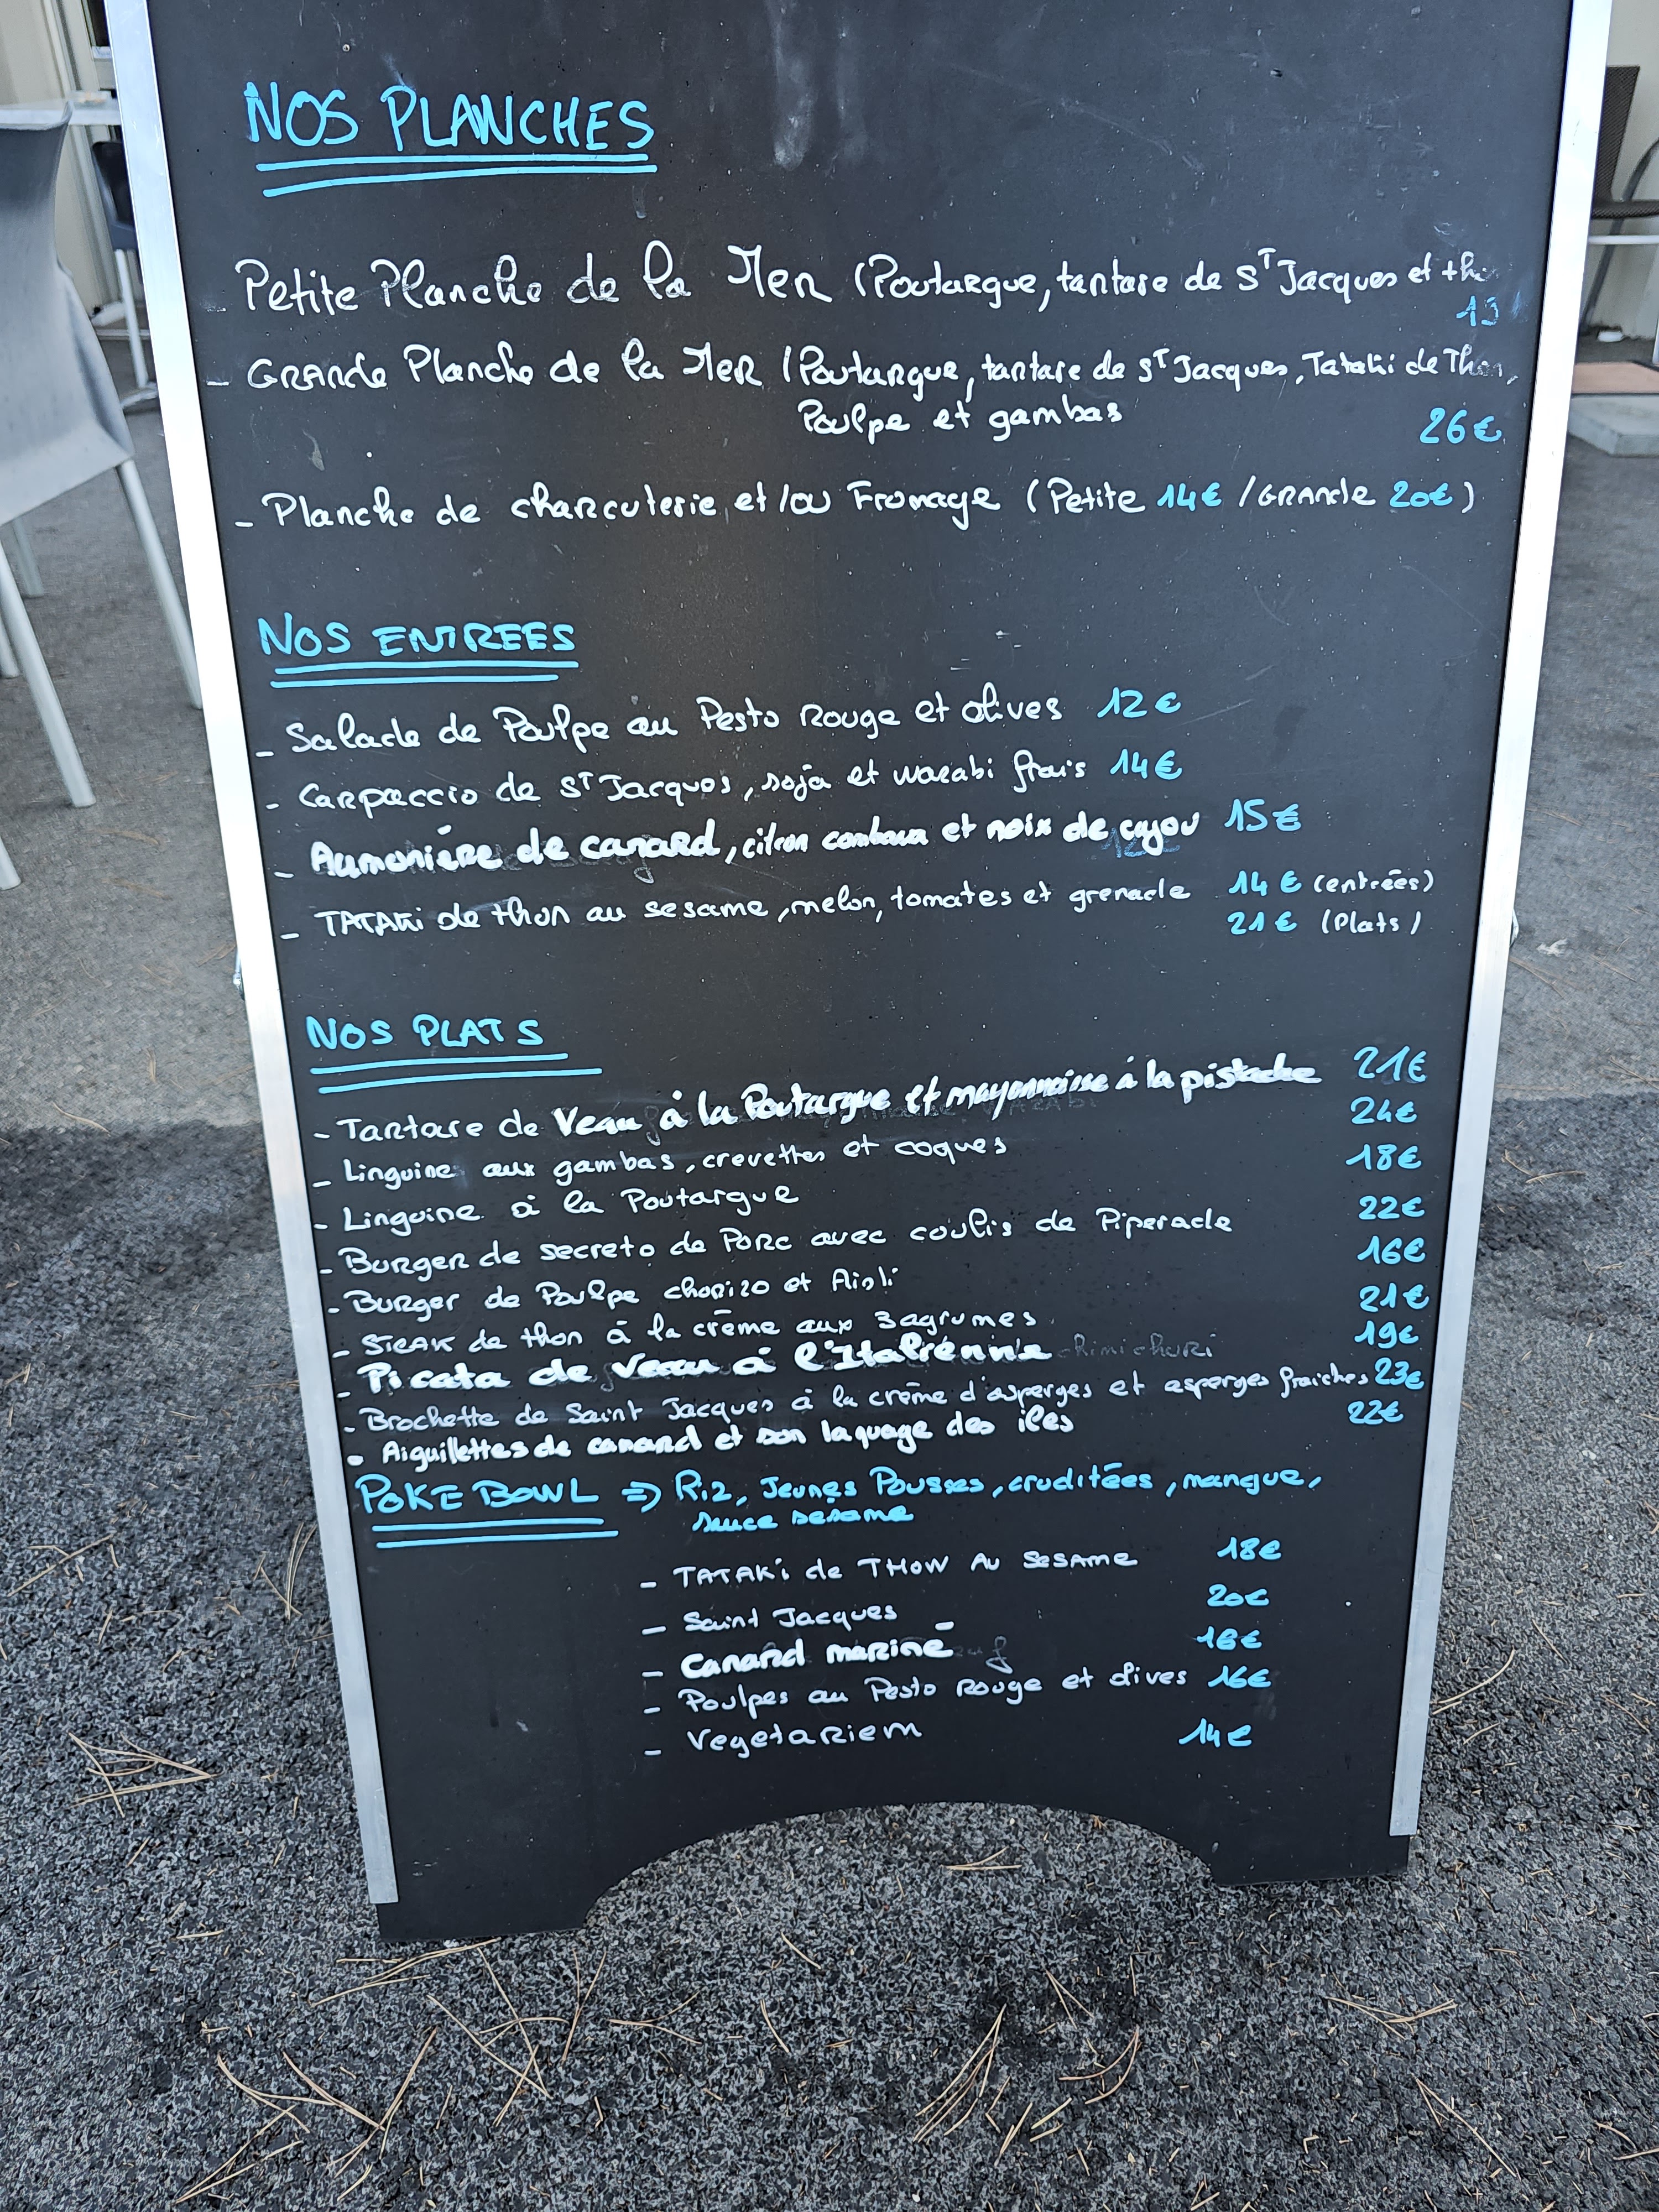 NOS PLANCHES
Petite Planche de la Mer (Poutargue, tantare de St Jacques et
- GRANDe Planche de la Mer (Poutargue, tantare de St Jacques, Tataki de Thon,
Poulpe et gambas 26€
- Planche de charcuterie et/ou Fromage (Petite 14€ / GRANDe 20€)
NOS ENTREES
- Salade de Poulpe au Pesto Rouge et olives 12€
- Carpaccio de St Jacques, soja et wazabi frais 14€
- Aumonière de canard, citron combava et noix de cajou 15€
- TATAKi de thon au sesame, melon, tomates et grenade 14€ (entrées)
21€ (Plats)
NOS PLATS
- Tartare de Veau à la Poutargue et mayonnaise à la pistache 21€
- Linguine aux gambas, crevettes et coques 24€
- Linguine à la Poutargue 18€
- Burger de secreto de Porc avec coulis de Piperade 22€
- Burger de Poulpe chorizo et Aioli 16€
- STEAK de thon à la crème aux 3 agrumes 21€
- Picata de Veau à l'Italiénne 19€
- Brochette de Saint Jacques à la crème d'asperges et asperges fraiches 23€
- Aiguillettes de canard et son laquage des iles 22€
POKE BOWL => Riz, Jeunes Pousses, cruditées, mangue,
sauce sesame
- TATAKi de THON AU SESAME 18€
- Saint Jacques 20€
- Canard mariné 16€
- Poulpes au Pesto Rouge et olives 16€
- Vegetariem 14€